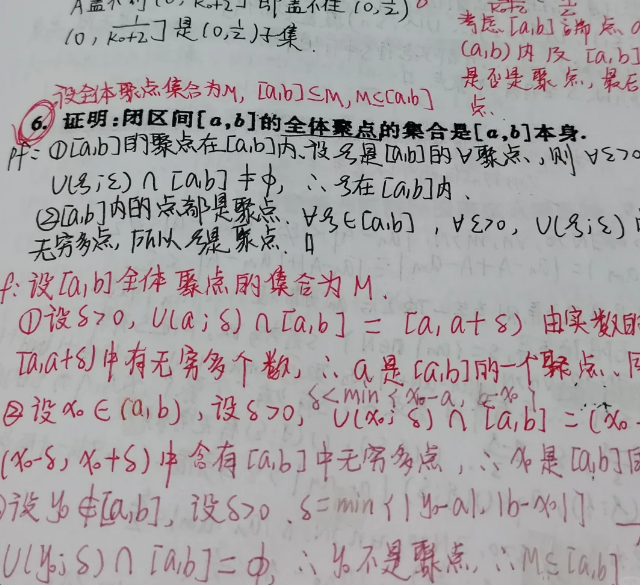 A盖不住(0, 1/(k₀+2)] 即盖不住(0, 1/2)
(0, 1/(k₀+2)] 是(0, 1/2)子集.
考虑[a,b]端点
(a,b)内及[a,b]
是否是聚点,最后
点.
设全体聚点集合为M, [a,b]⊆M, M⊆[a,b]
6. 证明:闭区间[a,b]的全体聚点的集合是[a,b]本身.
pf: ①[a,b]的聚点在[a,b]内、设ξ是[a,b]的∀聚点、,则∀ε>0
U(ξ;ε)∩[a,b]≠φ, ∴ξ在[a,b]内.
②[a,b]内的点都是聚点. ∀ξ∈[a,b], ∀ε>0, U(ξ;ε)
无穷多点,所以ξ是聚点. □
f: 设[a,b]全体聚点的集合为M.
①设δ>0, U(a;δ)∩[a,b]=[a,a+δ) 由实数的
[a,a+δ)中有无穷多个数, ∴a是[a,b]的一个聚点、
δ<min{x₀-a, b-x₀}
②设x₀∈(a,b), 设δ>0, U(x₀;δ)∩[a,b]=(x₀-
(x₀-δ, x₀+δ)中含有[a,b]中无穷多点, ∴x₀是[a,b]
设y₀∉[a,b], 设δ>0. δ=min{|y₀-a|, |b-x₀|}
U(y₀;δ)∩[a,b]=φ, ∴y₀不是聚点, ∴M⊆[a,b]